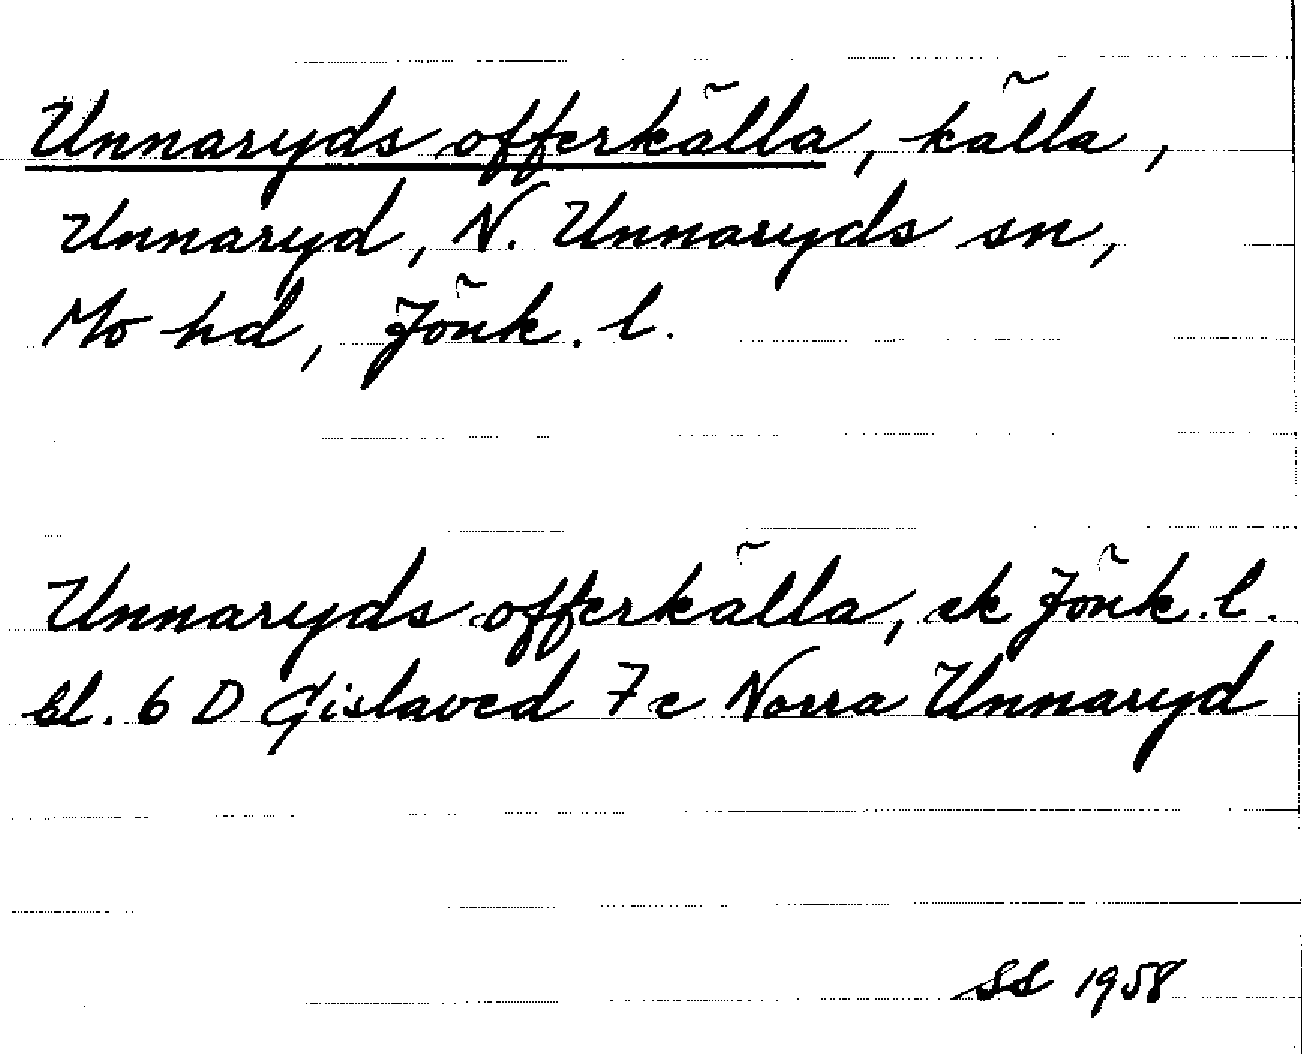 Unnaryds offerkälla, källa,
Unnaryd, N. Unnaryds sn,
Mo hd, Jönk. l.
Unnaryds offerkälla, ek Jönk. l.
bl. 6 D Gislaved 7c Norra Unnaryd
SS 1958